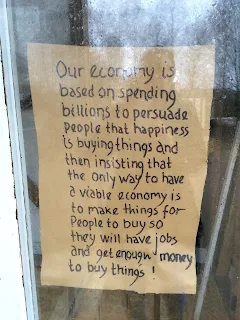 Our economy is
based on spending
billions to persuade
people that happiness
is buying things and
then insisting that
the only way to have
a viable economy is
to make things for
People to buy so
they will have jobs
and get enough money
to buy things !